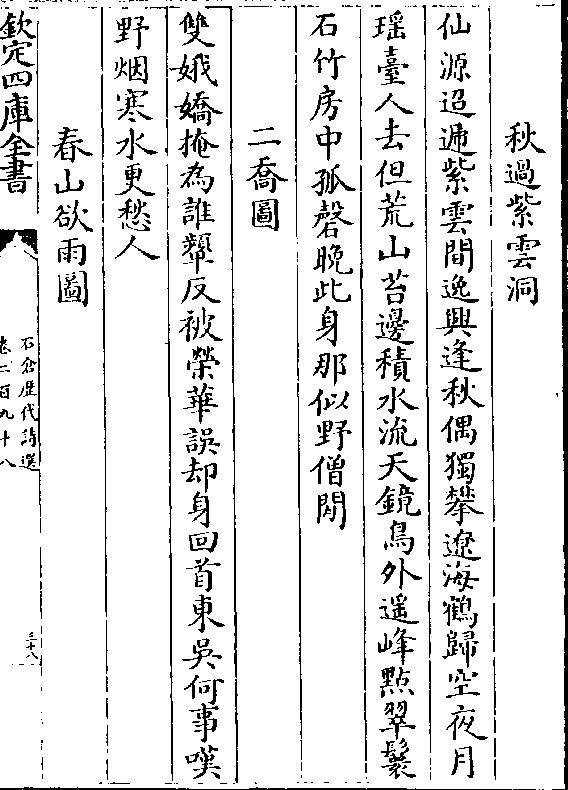 秋過紫雲洞
仙源迢遞紫雲間逸興逢秋偶獨攀遼海鶴歸空夜月
瑶臺人去但荒山苔邊積水流天鏡鳥外遥峰點翠鬟
石竹房中孤磬晚此身那似野僧閒
二喬圖
雙娥嬌掩為誰顰反被榮華誤却身回首東吳何事嘆
野烟寒水更愁人
春山欲雨圖
欽定四庫全書
石倉歴代詩選
卷二百九十八
三十八